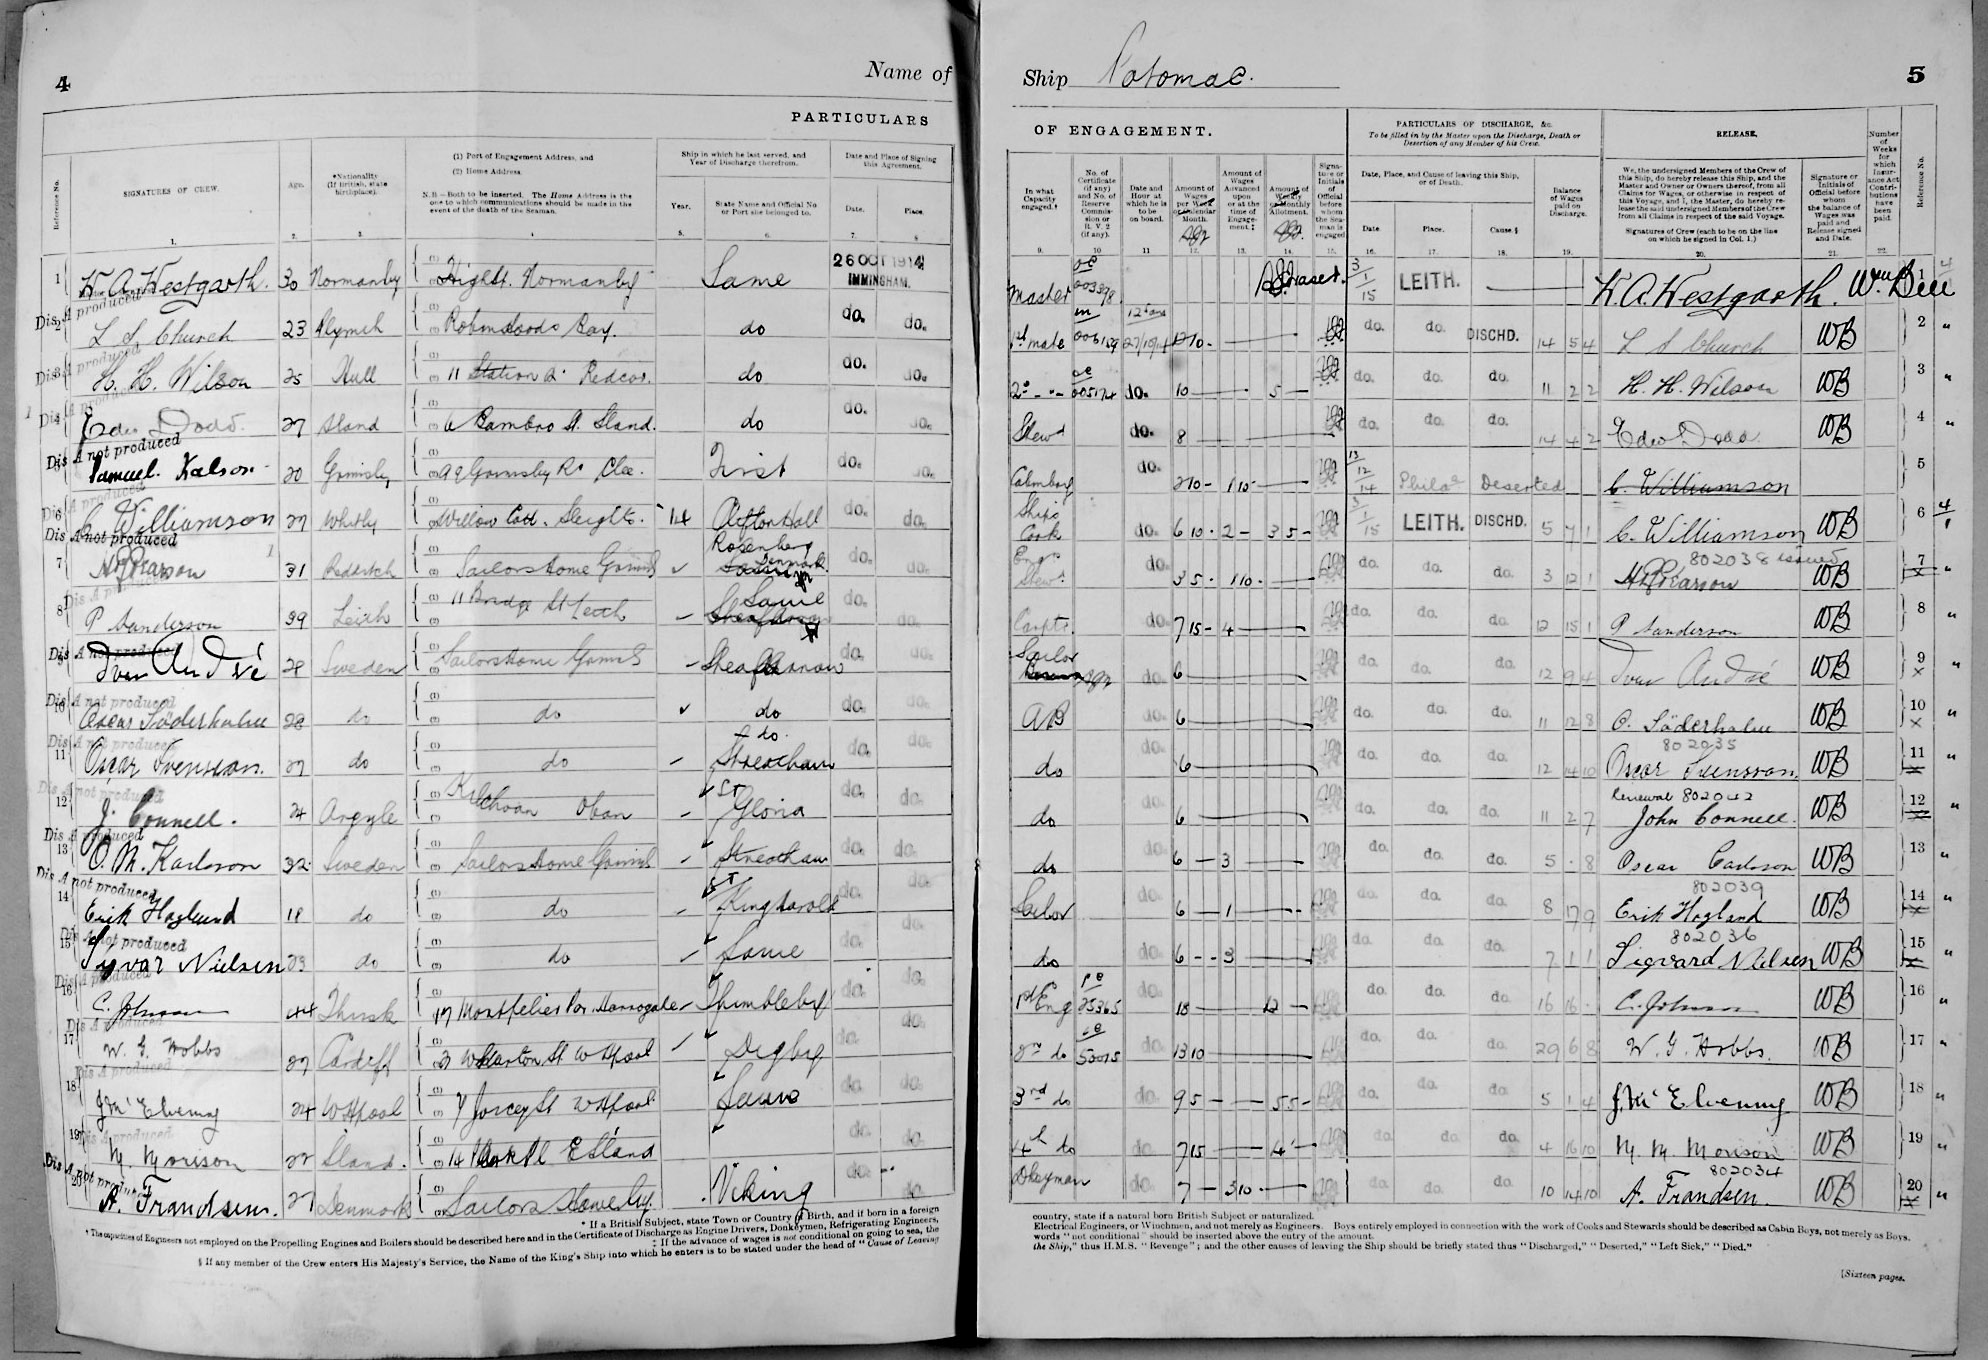 4
Name of
Ship Potomac.
5
PARTICULARS
OF ENGAGEMENT.
PARTICULARS OF DISCHARGE, &c.
To be filled in by the Master upon the Discharge, Death or Desertion of any Member of his Crew.
RELEASE.
Reference No.
SIGNATURES OF CREW.
Age.
*Nationality (If British, state birthplace).
(1) Port of Engagement Address, and
(2) Home Address.
N.B.—Both to be inserted. The Home Address is the one to which communications should be made in the event of the death of the Seaman.
Ship in which he last served, and Year of Discharge therefrom.
Year.
State Name and Official No or Port she belonged to.
Date and Place of Signing this Agreement.
Date.
Place.
In what Capacity engaged.†
No. of Certificate (if any) and No. of Reserve Commission or R.V. 2 (if any).
Date and Hour at which he is to be on board.
Amount of Wages per Week or Calendar Month.
Amount of Wages Advanced upon or at the time of Engagement.‡
Amount of Weekly or Monthly Allotment.
Signature or Initials of Official before whom the Seaman is engaged
Date, Place, and Cause of leaving this Ship, or of Death.
Date.
Place.
Cause.§
Balance of Wages paid on Discharge.
We, the undersigned Members of the Crew of this Ship, do hereby release this Ship, and the Master and Owner or Owners thereof, from all Claims for Wages, or otherwise in respect of this Voyage, and I, the Master, do hereby release the said undersigned Members of the Crew from all Claims in respect of the said Voyage.
Signatures of Crew (each to be on the line on which he signed in Col. 1.)
Signature or Initials of Official before whom the balance of Wages was paid and Release signed and Date.
Number of Weeks for which Insurance Act Contributions have been paid.
Reference No.
1 W. A. Westgarth. 30 Normanby High St. Normanby Same 26 OCT 1914 IMMINGHAM.
Master 003378 3/1/15 LEITH. W. A. Westgarth. Wm Bell 1
Dis A produced
2 L S Church 23 Robin Hoods Bay. do do. do.
1st mate 27/10/14 12 10 - do. do. DISCHD. 14 5 4 L S Church WB 2
Dis A produced
3 H. H. Wilson 25 Hull 11 Station Rd Redcar. do do. do.
2nd 005174 do. 10 5 do. do. do. 11 2 2 H. H. Wilson WB 3
Dis A produced
4 Edw Dodd. 27 Sland 6 Bambro St. Sland. do do. do.
Stewd do. 8 do. do. do. 14 4 2 Edw Dodd WB 4
Dis A not produced
5 Samuel. Kalson 20 Grimsby Grimsby Rd Clee. First do. do.
do. 2 10 - 1 10 - 13/12/14 Phila Deserted C. Williamson 5
Dis A produced
6 C Williamson 27 Whitby Willow Cott. Sleights. 14 Clifton Hall do. do.
Ships Cook do. 6 10 - 2 - 3 5 - 3/1/15 LEITH. DISCHD. 5 7 1 C. Williamson WB 6
Dis A not produced
7 H Pearson 31 Redditch Sailors Home Grimsb Rosenberg Denmark do. do.
Engr Stewd do. 3 5 - 1 10 - do. do. do. 3 12 1 802038 issued H Pearson WB 7
Dis A produced
8 P Sanderson 39 Leith 11 Bridge St Leith Same do. do.
Carptr. do. 7 15 - 4 do. do. do. 12 15 1 P Sanderson WB 8
Dis A not produced
9 Ivar André 28 Sweden Sailors Home Grimsb do. do.
Sailor do. 6 do. do. do. 12 9 4 Ivar André WB 9
Dis A not produced
10 Oscar Söderholm 28 do do do do. do.
AB do. 6 do. do. do. 11 12 8 O. Söderholm WB 10
Dis A not produced
11 Oscar Svenson. 27 do do Streatham do. do.
do do. 6 do. do. do. 12 14 10 802035 Oscar Svensson. WB 11
Dis A not produced
12 J. Connell. 24 Argyle Kilchoan Oban ST Gloria do. do.
do do. 6 do. do. do. 11 2 7 Renewal 802042 John Connell. WB 12
Dis A produced
13 O. M. Karlson 32 Sweden Sailors Home Grimsb Streatham do. do.
do do. 6 3 do. do. do. 5 - 8 Oscar Carlsson WB 13
Dis A not produced
14 Erik Hoglund 18 do do ST King Harold do. do.
Sailor do. 6 1 do. do. do. 8 17 9 802039 Erik Hogland WB 14
Dis A not produced
15 Sigvar Nielsen 23 do do Same do. do.
do do. 6 3 do. do. do. 7 1 1 802036 Sigvard Nielsen WB 15
Dis A produced
16 C. Johnson 44 Thirsk 17 Montpelier Par. Harrogate Thimbleby do. do.
1st Eng 25365 do. 18 12 do. do. do. 16 16 - C. Johnson WB 16
Dis A produced
17 W. G. Hobbs 27 Cardiff 3 Wharton St W Hpool Digby do. do.
2nd do 53015 do. 13 10 do. do. do. 29 6 8 W. G. Hobbs. WB 17
Dis A produced
18 J McElvenny 24 W Hpool 7 Joicey St W Hpool Same do. do.
3rd do do. 9 5 - 5 5 - do. do. do. 5 1 4 J. McElvenny WB 18
Dis A produced
19 M. Morison 22 Sland. 14 Park Pl E Sland do. do.
4th do do. 7 15 4 do. do. do. 4 16 10 M. M. Morison WB 19
Dis A not produced
20 A. Frandsen. 27 Denmark Sailors Home Viking do. do.
Dkeyman do. 7 3 10 - do. do. do. 10 14 10 802034 A. Frandsen. WB 20
* If a British Subject, state Town or Country of Birth, and if born in a foreign country, state if a natural born British Subject or naturalized.
† The capacities of Engineers not employed on the Propelling Engines and Boilers should be described here and in the Certificate of Discharge as Engine Drivers, Donkeymen, Refrigerating Engineers, Electrical Engineers, or Winchmen, and not merely as Engineers. Boys entirely employed in connection with the work of Cooks and Stewards should be described as Cabin Boys, not merely as Boys.
‡ If the advance of wages is not conditional on going to sea, the words "not conditional" should be inserted above the entry of the amount.
§ If any member of the Crew enters His Majesty's Service, the Name of the King's Ship into which he enters is to be stated under the head of "Cause of Leaving the Ship," thus H.M.S. "Revenge"; and the other causes of leaving the Ship should be briefly stated thus "Discharged," "Deserted," "Left Sick," "Died."
[Sixteen pages.